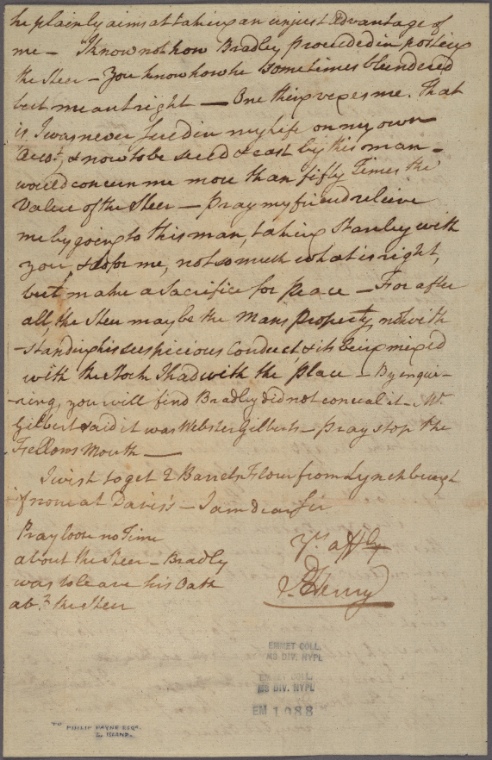 he plainly aims at taking an unjust Advantage of
me — I know not how Bradley proceeded in posting
the Steer — You know how he sometimes blundered
but meant right — One thing vexes me. That
is I was never sued in my life on my own
Acct, & now to be sued & cast by this man —
would concern me more than fifty Times the
Value of the Steer — Pray my friend relieve
me by going to this man, taking Stanley with
you, & do for me, not so much what is right,
but make a Sacrifice for peace — For after
all, the Steer may be the Mans Property, notwith
-standing his suspicious Conduct, & its being mix'd
with the Stock I had with the place — By enqui-
-ring, you will find Bradley did not conceal it — Mr
Gilbert said it was Webster Gilberts — pray stop the
Fellows Mouth —
I wish to get 2 Barrels Flour from Lynchburgh
if none at Davis's — I am dear Sir
Pray loose no Time
about the Steer — Bradley
was to leave his Oath
abt the Steer
Yr affly
P Henry
EMMET COLL.
MS DIV. NYPL
MS DIV. NYPL
EM 1088
TO PHILIP PAYNE ESQR.